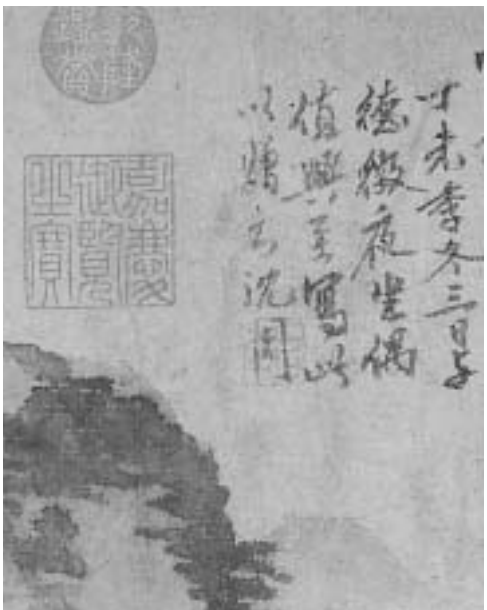 未季冬三日与
德徵夜坐偶
值興至寫此
以贈云沈周
嘉慶
御覽
之寶